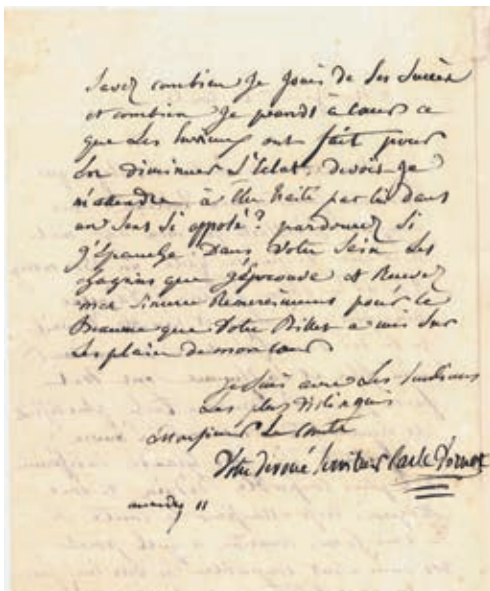 Savez combien Je Jouis de Ses Succès
et combien Je prends à cœur ce
que Les Envieux ont fait pour
En diminuer L'Eclat. devois-Je
m'attendre à Etre traité par lui dans
un Sens Si opposé? pardonnez Si
J'Epanche Dans Votre Sein Les
Chagrins que J'Eprouve et Recevez
mes Sinceres Remerciemens pour le
Beaume que Votre Billet a mis Sur
Les plaies de mon cœur
Je Suis avec Les Sentimens
Les plus Distingués
Monsieur Le Comte
Votre dévoué Serviteur Carle Vernet
11